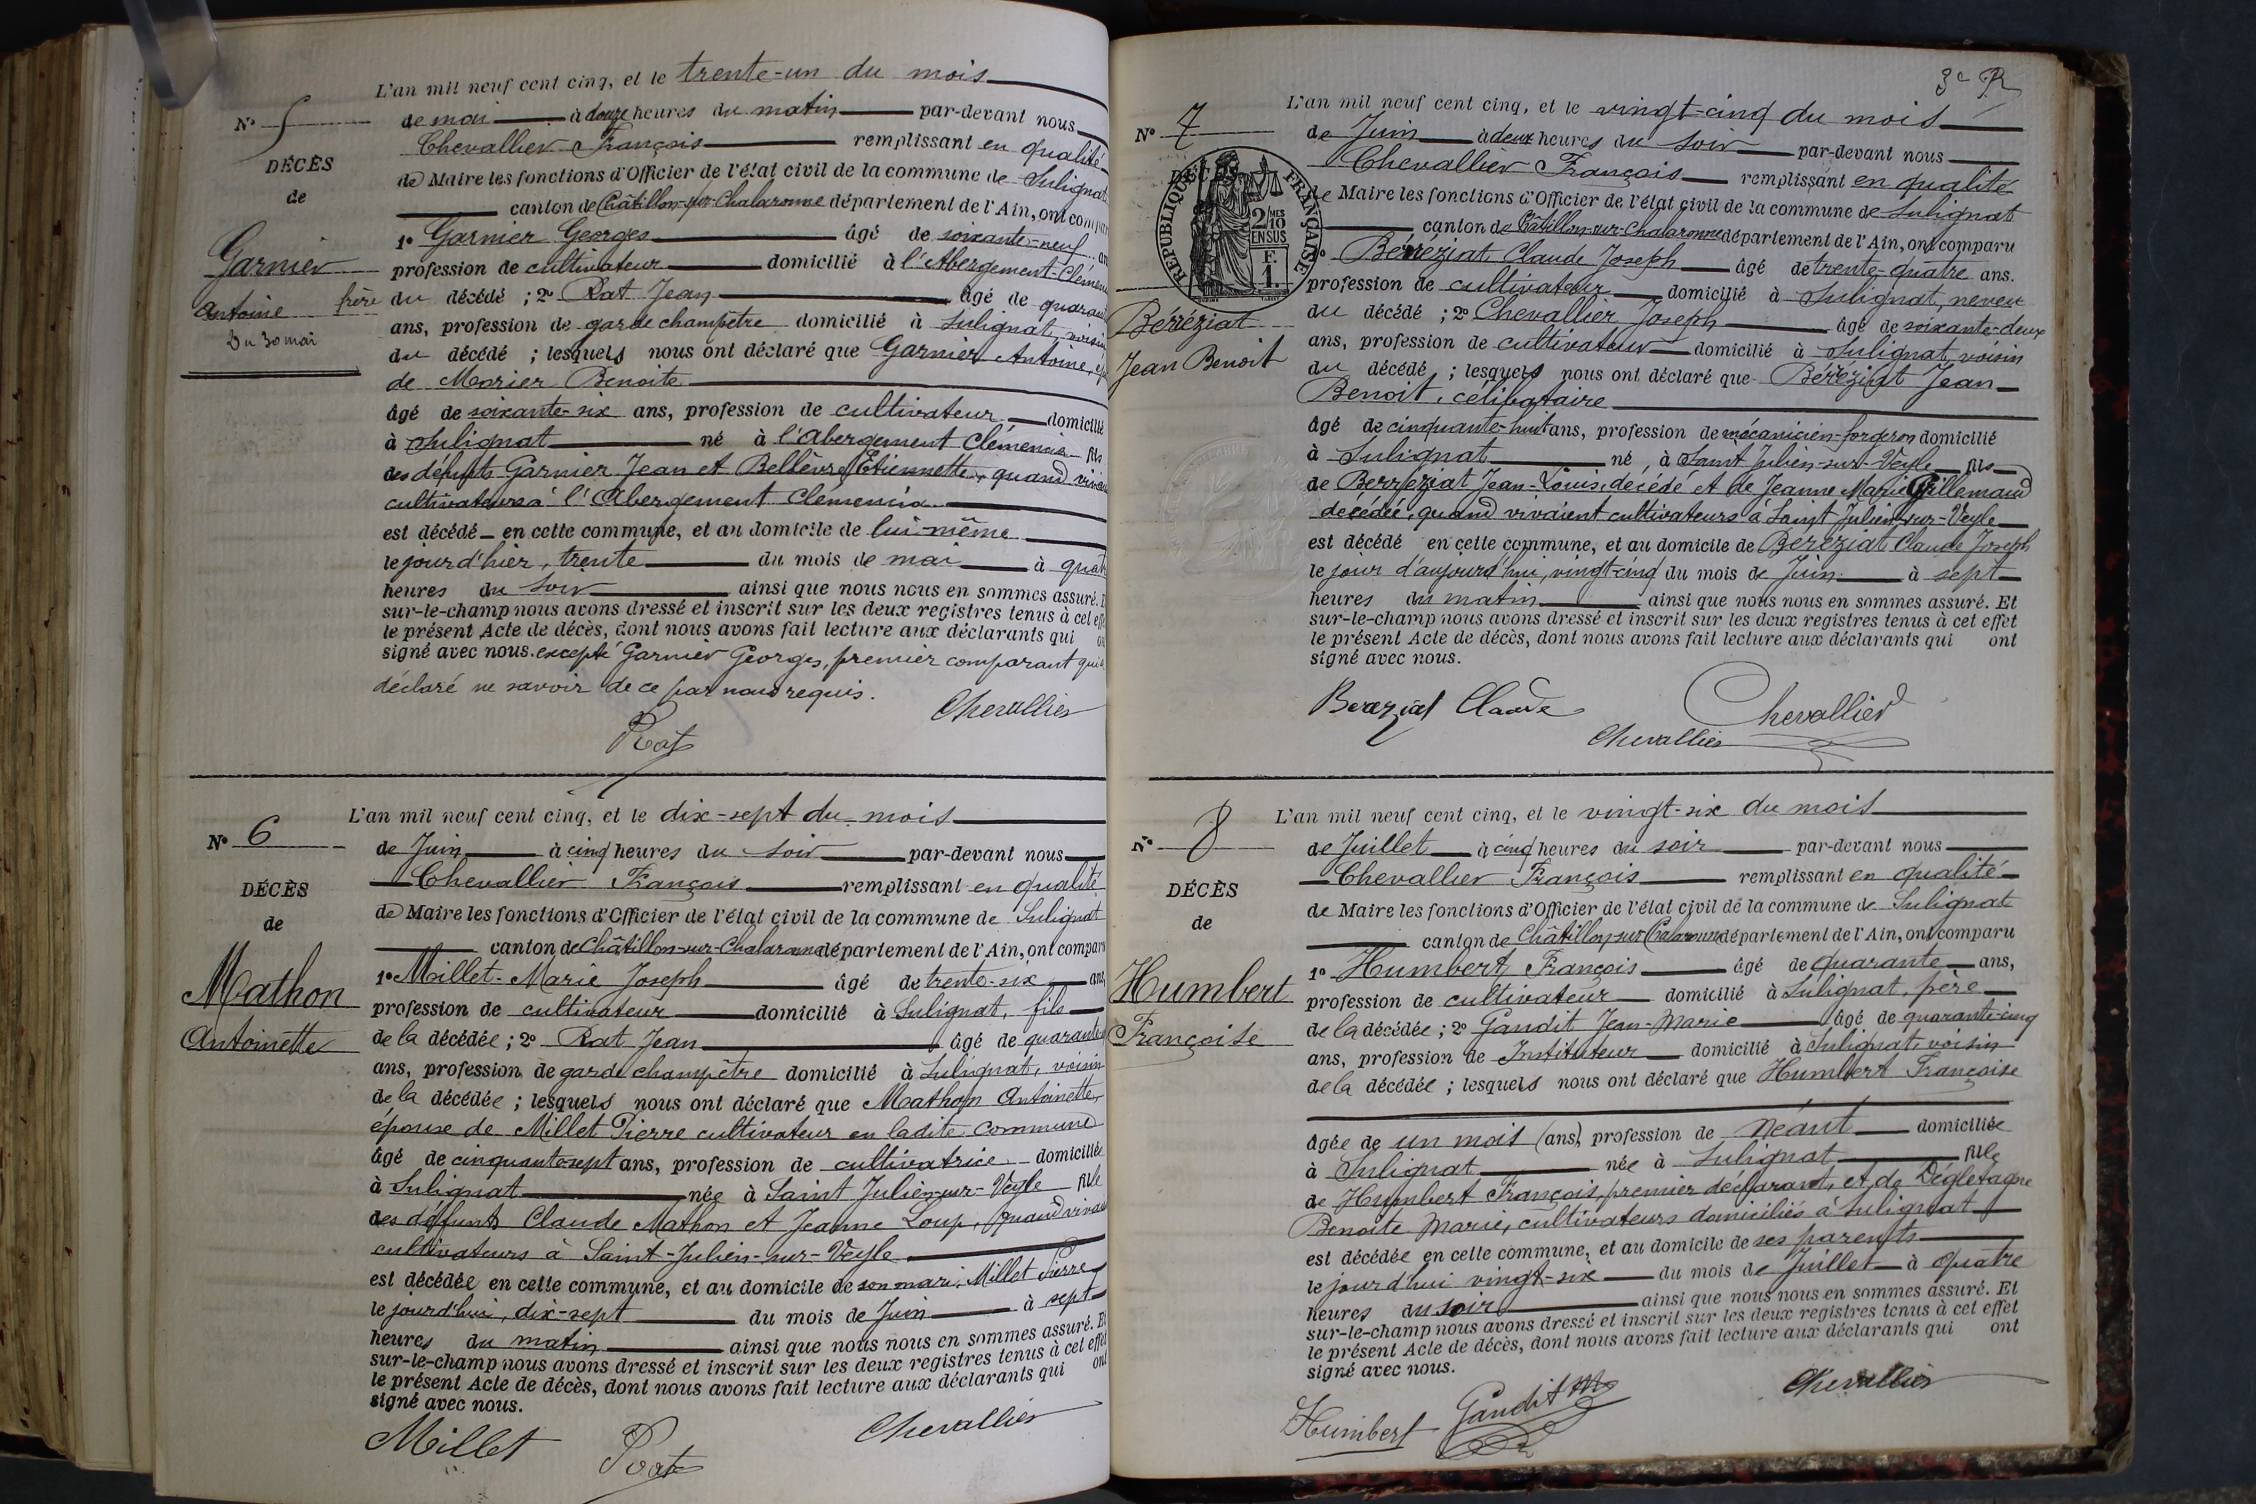 L'an mil neuf cent cinq, et le trente-un du mois
N° 5
de mai à douze heures du matin par-devant nous
Chevallier François remplissant en qualité
DÉCÈS
de Maire les fonctions d'Officier de l'état civil de la commune de Sulignat
de
canton de Châtillon-sur-Chalaronne département de l'Ain, ont compar
Garnier
1° Garnier Georges âgé de soixante-neuf an
profession de cultivateur domicilié à l'Abergement-Clémen
Antoine
frère du décédé ; 2° Rat Jean âgé de quaran
Du 30 mai
ans, profession de garde champêtre domicilié à Sulignat, voisin
du décédé ; lesquels nous ont déclaré que Garnier Antoine, ép
de Morier Benoite
âgé de soixante-six ans, profession de cultivateur domicilié
à Sulignat né à l'Abergement Clémencia fils
des défunts Garnier Jean et Bellèvre Etiennette, quand vivai
cultivateurs à l'Abergement Clémencia
est décédé en cette commune, et au domicile de lui-même
le jour d'hier, trente du mois de mai à quat
heures du soir ainsi que nous nous en sommes assuré.
sur-le-champ nous avons dressé et inscrit sur les deux registres tenus à cet effe
le présent Acte de décès, dont nous avons fait lecture aux déclarants qui on
signé avec nous. excepté Garnier Georges, premier comparant qui a
déclaré ne savoir de ce par nous requis.
Chevallier
Rat
L'an mil neuf cent cinq, et le dix-sept du mois
N° 6
de Juin à cinq heures du soir par-devant nous
Chevallier François remplissant en qualité
DÉCÈS
de Maire les fonctions d'Officier de l'état civil de la commune de Sulignat
de
canton de Châtillon-sur-Chalaronne département de l'Ain, ont comparu
Mathon
1° Millet Marie Joseph âgé de trente-six ans
profession de cultivateur domicilié à Sulignat, fils
Antoinette
de la décédée ; 2° Rat Jean âgé de quarante
ans, profession de garde champêtre domicilié à Sulignat, voisin
de la décédée ; lesquels nous ont déclaré que Mathon Antoinette,
épouse de Millet Pierre cultivateur en ladite commune
âgé de cinquante sept ans, profession de cultivatrice domiciliée
à Sulignat née à Saint Julien-sur-Veyle fille
des défunts Claude Mathon et Jeanne Loup, quand vivai
cultivateurs à Saint-Julien-sur-Veyle
est décédée en cette commune, et au domicile de son mari, Millet Pierre
le jourd'hui, dix-sept du mois de Juin à sept
heures du matin ainsi que nous nous en sommes assuré. Et
sur-le-champ nous avons dressé et inscrit sur les deux registres tenus à cet effet
le présent Acte de décès, dont nous avons fait lecture aux déclarants qui ont
signé avec nous.
Millet Rat Chevallier
3e R
L'an mil neuf cent cinq, et le vingt-cinq du mois
N° 7
de Juin à deux heures du soir par-devant nous
Chevallier François remplissant en qualité
de Maire les fonctions d'Officier de l'état civil de la commune de Sulignat
RÉPUBLIQUE FRANÇAISE
2/10 MES EN SUS
F. 1.
canton de Châtillon-sur-Chalaronne département de l'Ain, ont comparu
Béréziat Claude Joseph âgé de trente-quatre ans.
profession de cultivateur domicilié à Sulignat, neveu
Béréziat
du décédé ; 2° Chevallier Joseph âgé de soixante-deux
ans, profession de cultivateur domicilié à Sulignat, voisin
Jean Benoit
du décédé ; lesquels nous ont déclaré que Béréziat Jean
Benoit, célibataire
âgé de cinquante-huit ans, profession de mécanicien-forgeron domicilié
à Sulignat né à Saint Julien-sur-Veyle fils
de Berreziat Jean-Louis, décédé et de Jeanne Marie
décédée, quand vivaient cultivateurs à Saint Julien-sur-Veyle
est décédé en cette commune, et au domicile de Béréziat Claude Joseph
le jour d'aujourd'hui, vingt-cinq du mois de Juin à sept
heures du matin ainsi que nous nous en sommes assuré. Et
sur-le-champ nous avons dressé et inscrit sur les deux registres tenus à cet effet
le présent Acte de décès, dont nous avons fait lecture aux déclarants qui ont
signé avec nous.
Bereziat Claude Chevallier
Chevallier
L'an mil neuf cent cinq, et le vingt-six du mois
N° 8
de Juillet à cinq heures du soir par-devant nous
Chevallier François remplissant en qualité
DÉCÈS
de Maire les fonctions d'Officier de l'état civil de la commune de Sulignat
de
canton de Châtillon-sur-Chalaronne département de l'Ain, ont comparu
Humbert
1° Humbert François âgé de quarante ans,
profession de cultivateur domicilié à Sulignat, père
Françoise
de la décédée ; 2° Gandit Jean-Marie âgé de quarante-cinq
ans, profession de Instituteur domicilié à Sulignat, voisin
de la décédée ; lesquels nous ont déclaré que Humbert Françoise
âgée de un mois (ans), profession de néant domiciliée
à Sulignat née à Sulignat fille
de Humbert François, premier déclarant, et de Dégletagne
Benoite Marie, cultivateurs domiciliés à Sulignat
est décédée en cette commune, et au domicile de ses parents
le jourd'hui vingt-six du mois de Juillet à quatre
heures du soir ainsi que nous nous en sommes assuré. Et
sur-le-champ nous avons dressé et inscrit sur les deux registres tenus à cet effet
le présent Acte de décès, dont nous avons fait lecture aux déclarants qui ont
signé avec nous.
Humbert Gandit JM Chevallier